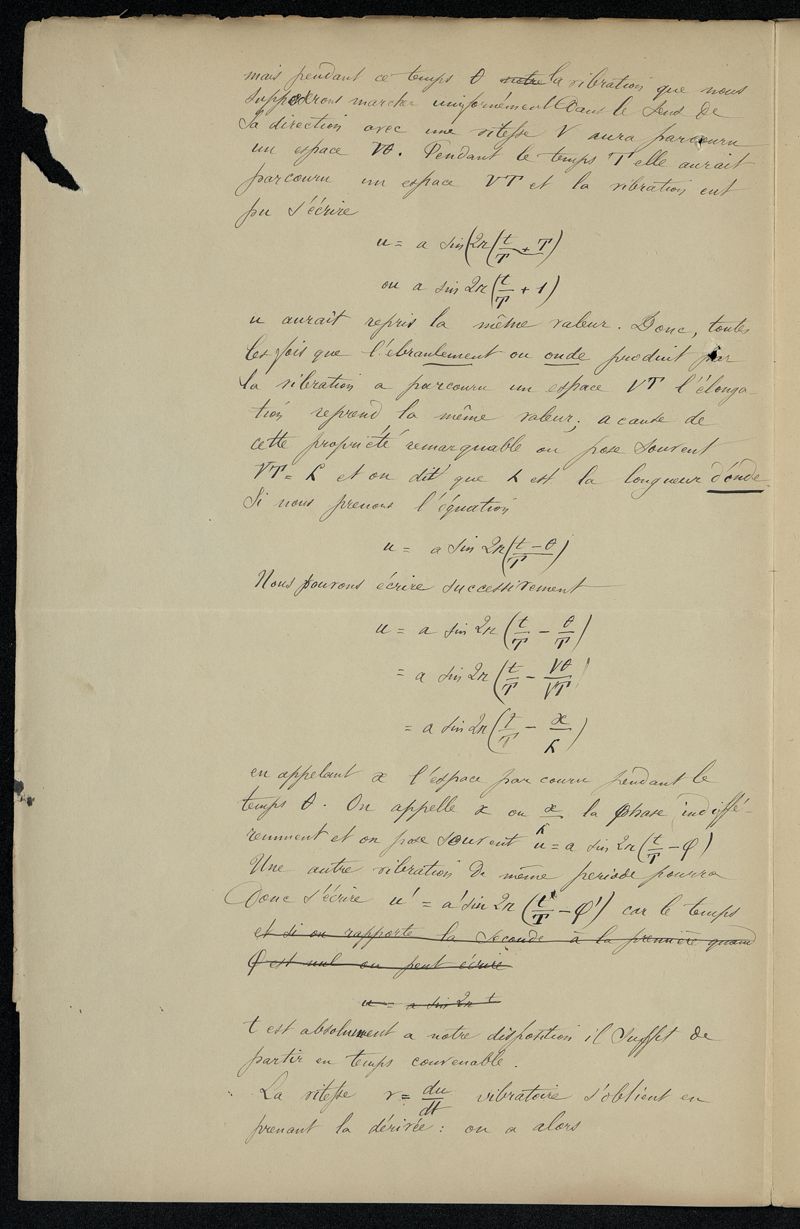 mais pendant ce temps θ notre la vibration que nous
supposerons marcher uniformément dans le sens de
sa direction avec une vitesse V aura parcouru
un espace Vθ. Pendant le temps T elle aurait
parcouru un espace VT et la vibration eut
pu s'écrire
u = a sin(2π(t/T + T)
ou a sin 2π(t/T + 1)
u aurait repris la même valeur. Donc, toutes
les fois que l'ebranlement ou onde produit par
la vibration a parcouru un espace VT l'élonga-
tion reprend la même valeur; a cause de
cette propriété remarquable on pose souvent
VT = L et on dit que L est la longueur d'onde.
Si nous prenons l'équation
u = a sin 2π(t-θ/T)
Nous pouvons écrire successivement
u = a sin 2π (t/T - θ/T)
= a sin 2π (t/T - Vθ/VT)
= a sin 2π (t/T - x/L)
en appelant x l'espace parcouru pendant le
temps θ. On appelle x ou x/L la phase indiffé-
remment et on pose souvent u = a sin 2π(t/T - φ)
Une autre vibration de même periode pourra
Donc s'écrire u' = a' sin 2π (t/T - φ') car le temps
et si on rapporte la seconde à la première quand
φ est nul on peut écrire
u = a sin 2π t
t est absolument a notre disposition il suffit de
partir en temps convenable.
La vitesse v = du/dt vibratoire s'obtient en
prenant la dérivée : on a alors